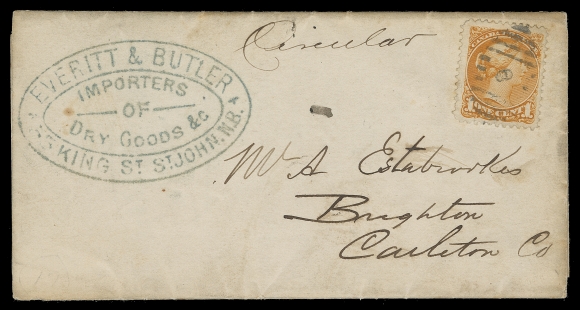 Circular
EVERITT & BUTLER
IMPORTERS
OF
DRY GOODS &c
KING ST ST JOHN, N.B.
ONE CENT
Mr A Estabrookes
Brighton
Carleton Co